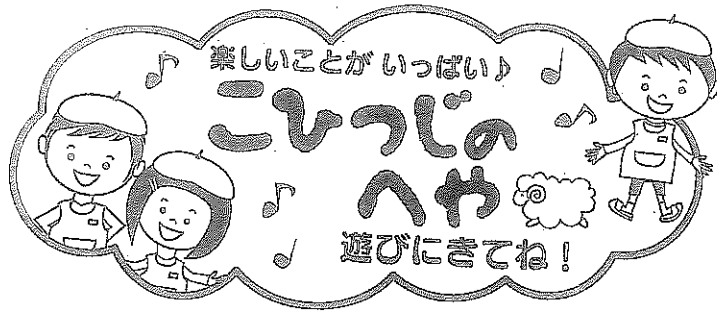 楽しいことがいっぱい♪
こひつじの
へや
遊びにきてね！